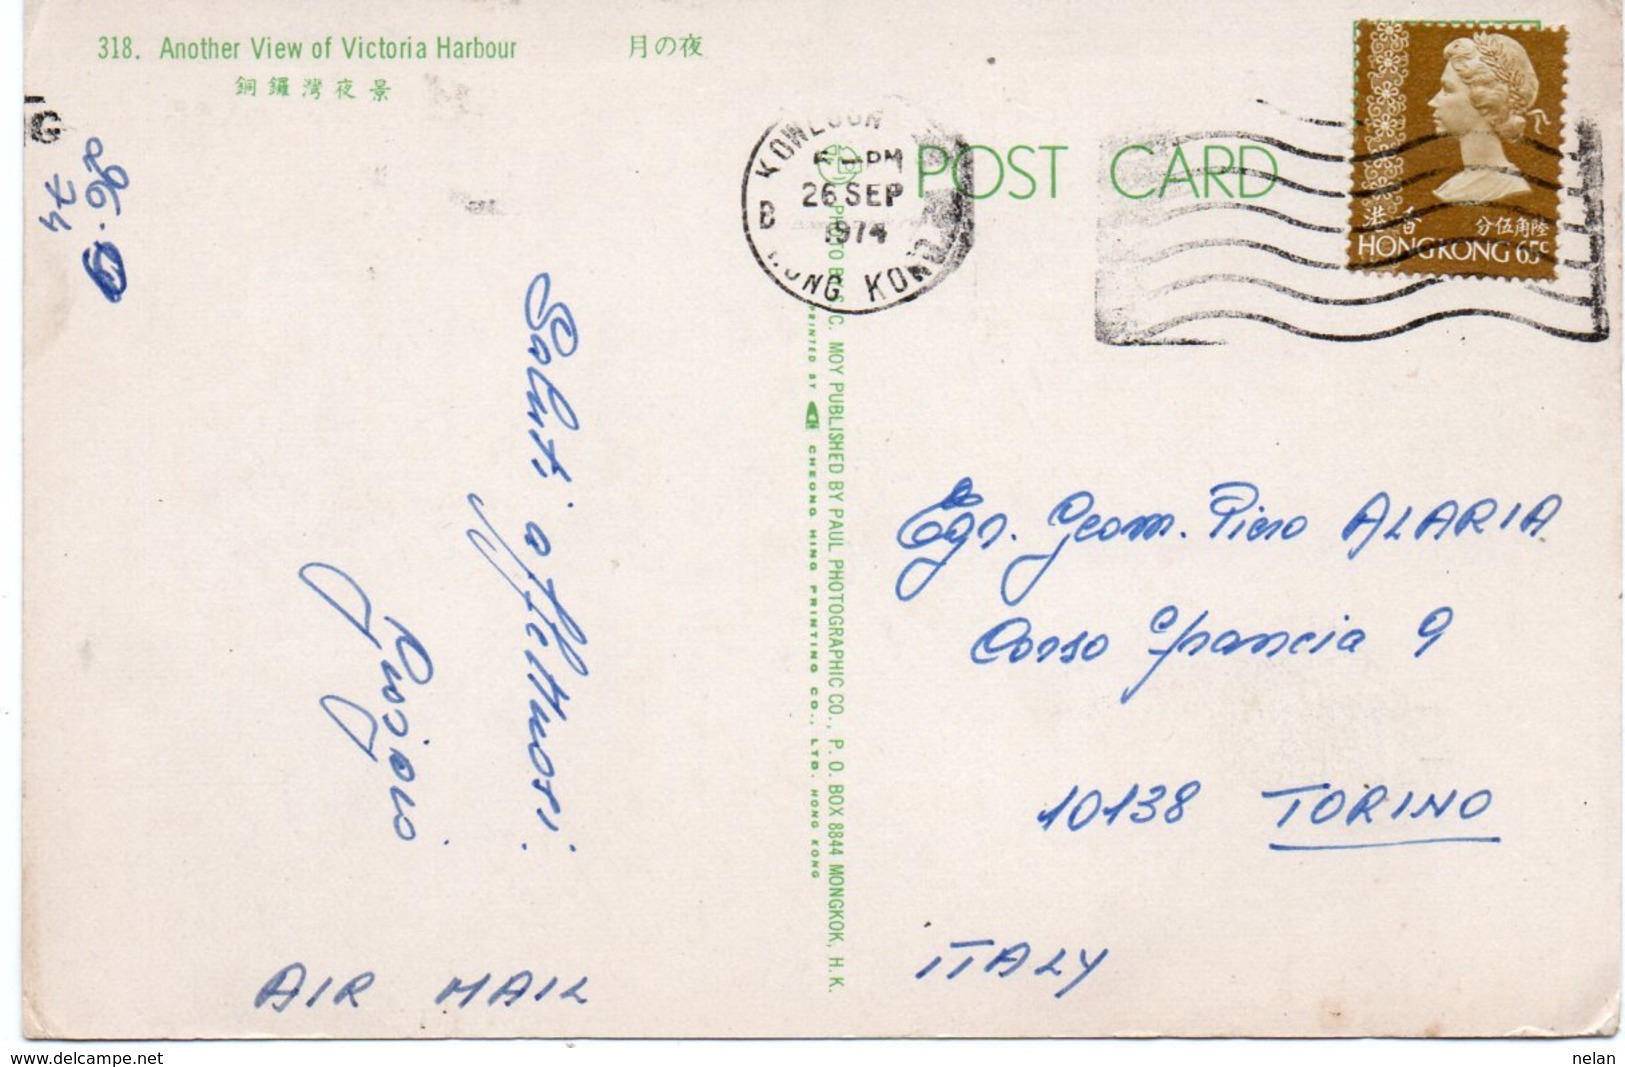 318. Another View of Victoria Harbour
月の夜
銅鑼灣夜景
26.9
74
KOWLOON
PM
26 SEP
1974
B
HONG KONG
POST CARD
港香
分伍角陸
HONG KONG 65c
PHOTO BY S. C. MOY PUBLISHED BY PAUL PHOTOGRAPHIC CO., P. O. BOX 8844 MONGKOK, H. K.
PRINTED BY CHEONG HING PRINTING CO., LTD. HONG KONG
Saluti affettuosi.
Egr. Geom. Piero ALARIA
Corso Francia 9
10138 TORINO
ITALY
AIR MAIL
www.delcampe.net
nelan